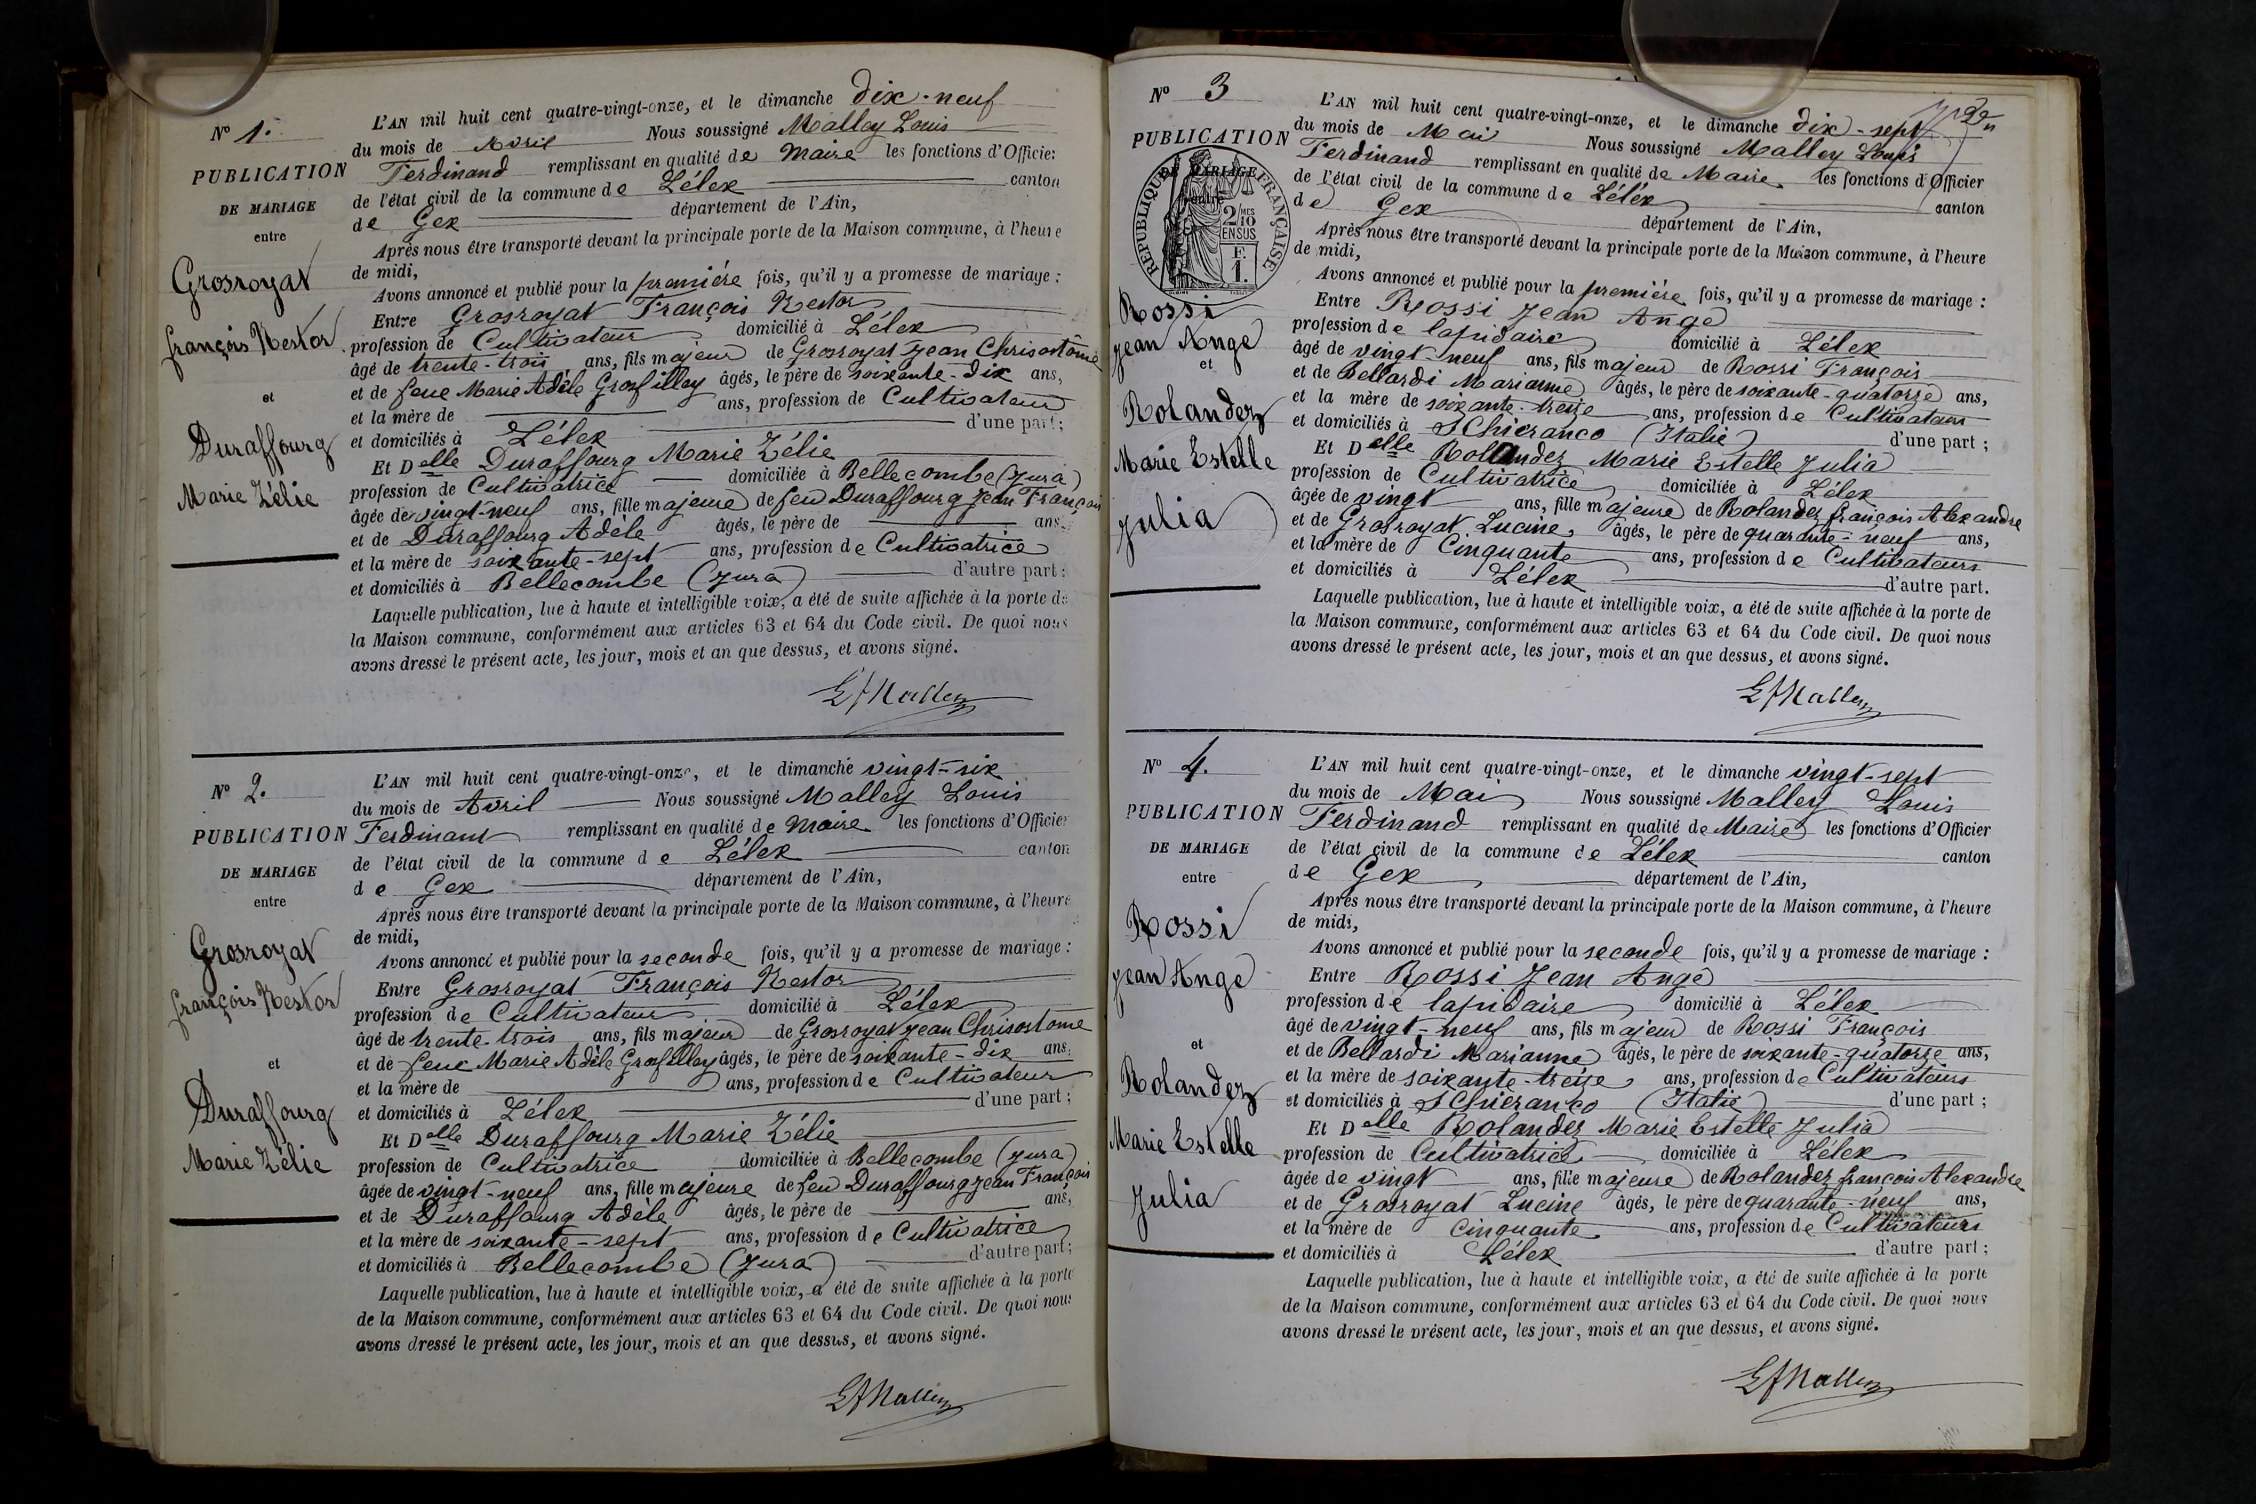 N° 1.
PUBLICATION
DE MARIAGE
entre
Grosroyat
François Nestor
et
Duraffourg
Marie Zélie
L'AN mil huit cent quatre-vingt-onze, et le dimanche dix-neuf
du mois de Avril Nous soussigné Malley Louis
Ferdinand remplissant en qualité de Maire les fonctions d'Officier
de l'état civil de la commune de Lélex canton
de Gex département de l'Ain,
Après nous être transporté devant la principale porte de la Maison commune, à l'heure
de midi,
Avons annoncé et publié pour la première fois, qu'il y a promesse de mariage :
Entre Grosroyat François Nestor
profession de Cultivateur domicilié à Lélex
âgé de trente-trois ans, fils majeur de Grosroyat Jean Chrisostôme
et de feue Marie Adèle Grosfilley âgés, le père de soixante-dix ans,
et la mère de ans, profession de Cultivateur
et domiciliés à Lélex d'une part ;
Et Delle Duraffourg Marie Zélie
profession de Cultivatrice domiciliée à Bellecombe (Jura)
âgée de vingt-neuf ans, fille majeure de feu Duraffourg Jean François
et de Duraffourg Adèle âgés, le père de ans,
et la mère de soixante-sept ans, profession de Cultivatrice
et domiciliés à Bellecombe (Jura) d'autre part :
Laquelle publication, lue à haute et intelligible voix, a été de suite affichée à la porte de
la Maison commune, conformément aux articles 63 et 64 du Code civil. De quoi nous
avons dressé le présent acte, les jour, mois et an que dessus, et avons signé.
LfMalley
N° 2.
PUBLICATION
DE MARIAGE
entre
Grosroyat
François Nestor
et
Duraffourg
Marie Zélie
L'AN mil huit cent quatre-vingt-onze, et le dimanche vingt-six
du mois de Avril Nous soussigné Malley Louis
Ferdinant remplissant en qualité de Maire les fonctions d'Officier
de l'état civil de la commune de Lélex canton
de Gex département de l'Ain,
Après nous être transporté devant la principale porte de la Maison commune, à l'heure
de midi,
Avons annoncé et publié pour la seconde fois, qu'il y a promesse de mariage :
Entre Grosroyat François Nestor
profession de Cultivateur domicilié à Lélex
âgé de trente-trois ans, fils majeur de Grosroyat Jean Chrisostome
et de feue Marie Adèle Grosfilley âgés, le père de soixante-dix ans,
et la mère de ans, profession de Cultivateur
et domiciliés à Lélex d'une part ;
Et Delle Duraffourg Marie Zélie
profession de Cultivatrice domiciliée à Bellecombe (Jura)
âgée de vingt-neuf ans, fille majeure de feu Duraffourg Jean François
et de Duraffourg Adèle âgés, le père de ans,
et la mère de soixante-sept ans, profession de Cultivatrice
et domiciliés à Bellecombe (Jura) d'autre part ;
Laquelle publication, lue à haute et intelligible voix, a été de suite affichée à la porte
de la Maison commune, conformément aux articles 63 et 64 du Code civil. De quoi nous
avons dressé le présent acte, les jour, mois et an que dessus, et avons signé.
LfMalley
N° 3
PUBLICATION
DE MARIAGE
entre
RÉPUBLIQUE FRANÇAISE
2/10 MES
EN SUS
F.
1.
Rossi
Jean Ange
et
Rolandez
Marie Estelle
Julia
L'AN mil huit cent quatre-vingt-onze, et le dimanche dix-sept
du mois de Mai Nous soussigné Malley Louis
Ferdinand remplissant en qualité de Maire les fonctions d'Officier
de l'état civil de la commune de Lélex canton
de Gex département de l'Ain,
Après nous être transporté devant la principale porte de la Maison commune, à l'heure
de midi,
Avons annoncé et publié pour la première fois, qu'il y a promesse de mariage :
Entre Rossi Jean Ange
profession de lapidaire domicilié à Lélex
âgé de vingt-neuf ans, fils majeur de Rossi François
et de Bellardi Marianne âgés, le père de soixante-quatorze ans,
et la mère de soixante-treize ans, profession de Cultivateurs
et domiciliés à SChieranco (Italie) d'une part ;
Et Delle Rolandez Marie Estelle Julia
profession de Cultivatrice domiciliée à Lélex
âgée de vingt ans, fille majeure de Rolandez françois Alexandre
et de Grosroyat Lucine âgés, le père de quarante-neuf ans,
et la mère de Cinquante ans, profession de Cultivateurs
et domiciliés à Lélex d'autre part.
Laquelle publication, lue à haute et intelligible voix, a été de suite affichée à la porte de
la Maison commune, conformément aux articles 63 et 64 du Code civil. De quoi nous
avons dressé le présent acte, les jour, mois et an que dessus, et avons signé.
LfMalley
N° 4.
PUBLICATION
DE MARIAGE
entre
Rossi
Jean Ange
et
Rolandez
Marie Estelle
Julia
L'AN mil huit cent quatre-vingt-onze, et le dimanche vingt-sept
du mois de Mai Nous soussigné Malley Louis
Ferdinand remplissant en qualité de Maire les fonctions d'Officier
de l'état civil de la commune de Lélex canton
de Gex département de l'Ain,
Après nous être transporté devant la principale porte de la Maison commune, à l'heure
de midi,
Avons annoncé et publié pour la seconde fois, qu'il y a promesse de mariage :
Entre Rossi Jean Ange
profession de lapidaire domicilié à Lélex
âgé de vingt-neuf ans, fils majeur de Rossi François
et de Bellardi Marianne âgés, le père de soixante-quatorze ans,
et la mère de soixante-treize ans, profession de Cultivateurs
et domiciliés à SChieranco (Italie) d'une part ;
Et Delle Rolandez Marie Estelle Julia
profession de Cultivatrice domiciliée à Lélex
âgée de vingt ans, fille majeure de Rolandez françois Alexandre
et de Grosroyat Lucine âgés, le père de quarante-neuf ans,
et la mère de cinquante ans, profession de Cultivateurs
et domiciliés à Lélex d'autre part ;
Laquelle publication, lue à haute et intelligible voix, a été de suite affichée à la porte
de la Maison commune, conformément aux articles 63 et 64 du Code civil. De quoi nous
avons dressé le présent acte, les jour, mois et an que dessus, et avons signé.
LfMalley